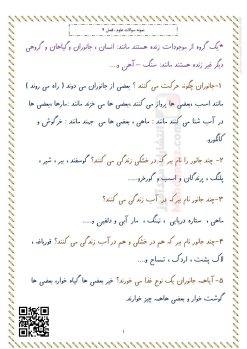 نمونه سوالات علوم- فصل ۹
*یک گروه از موجودات زنده هستند مانند: انسان ، جانوران وگیاهان و گروهی
دیگر غیر زنده هستند مانند: سنگ – آهن و....
۱-جانوران چگونه حرکت می کنند ؟ بعضی از جانوران می دوند ( راه می روند )
مانند اسب ،بعضی ها پرواز می کنند بعضی ها می خزند مانند :مارها ،بعضی ها
در آب شنا می کنند مانند : ماهی ، بعضی ها می جهند مانند : خرگوش و
کانگورو.
۲-چند جانور را نام ببر که در خشکی زندگی می کنند؟ گوسفند ، ببر ، شیر ،
پلنگ ، پرندگان و اسب و گورخرو.....
۳-چند جانور نام ببر که در آب زندگی می کنند؟
ماهی ، ستاره دریایی ، نهنگ ، مار آبی و دلفین و....
۴-چند جانور نام ببر که هم در خشکی و هم در آب زندگی می کنند؟ قورباغه ،
لاک پشت ، اردک ، تمساح و....
۵- آیاهمه جانوران یک نوع غذا می خورند؟ خیر بعضی ها گیاه خوار، بعضی ها
گوشت خوار و بعضی هاهمه چیز خوارند.